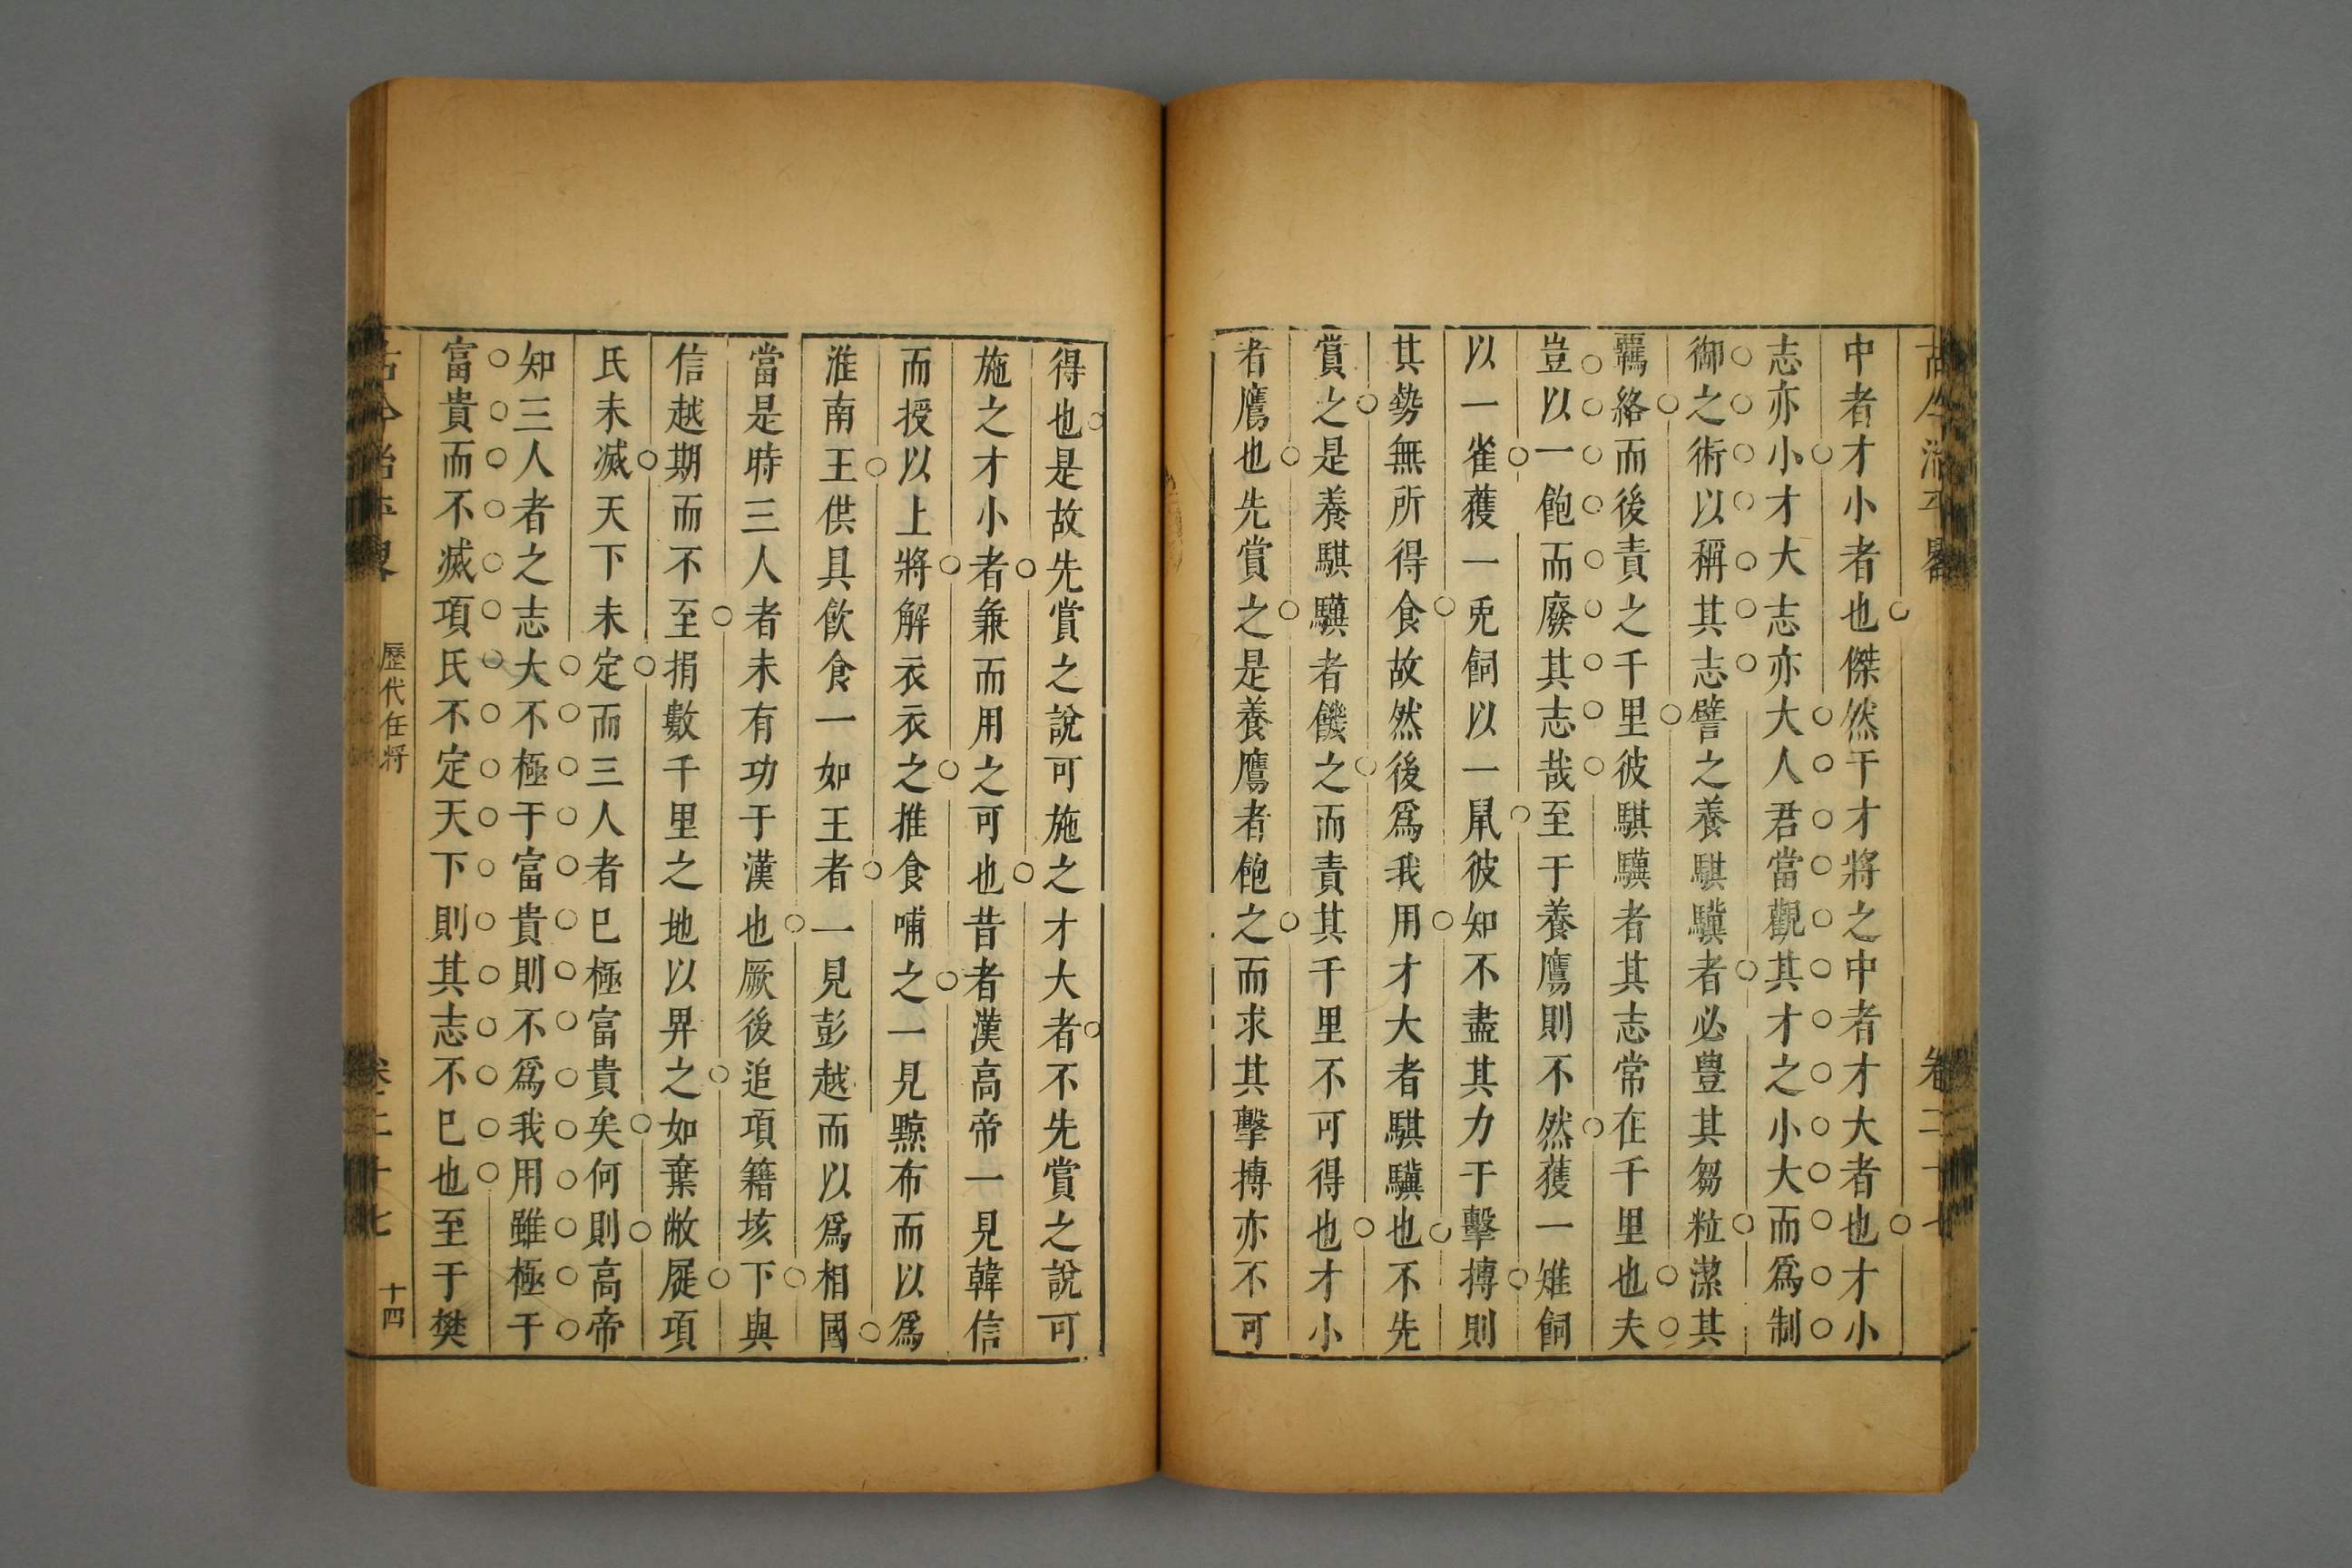 古今治平畧 卷二十七
中者才小者也傑然于才將之中者才大者也才小
志亦小才大志亦大人君當觀其才之小大而爲制
御之術以稱其志譬之養騏驥者必豊其芻粒潔其
羈絡而後責之千里彼騏驥者其志常在千里也夫
豈以一飽而廢其志哉至于養鷹則不然獲一雉飼
以一雀獲一兎飼以一鼠彼知不盡其力于擊搏則
其勢無所得食故然後爲我用才大者騏驥也不先
賞之是養騏驥者饑之而責其千里不可得也才小
者鷹也先賞之是養鷹者飽之而求其擊搏亦不可
得也是故先賞之說可施之才大者不先賞之說可
施之才小者兼而用之可也昔者漢高帝一見韓信
而授以上將解衣衣之推食哺之一見黥布而以爲
淮南王供具飲食一如王者一見彭越而以爲相國
當是時三人者未有功于漢也厥後追項籍垓下與
信越期而不至捐數千里之地以畀之如棄敝屣項
氏未滅天下未定而三人者巳極富貴矣何則高帝
知三人者之志大不極于富貴則不爲我用雖極于
富貴而不滅項氏不定天下則其志不巳也至于樊
古今治平畧 歷代任将 卷二十七 十四